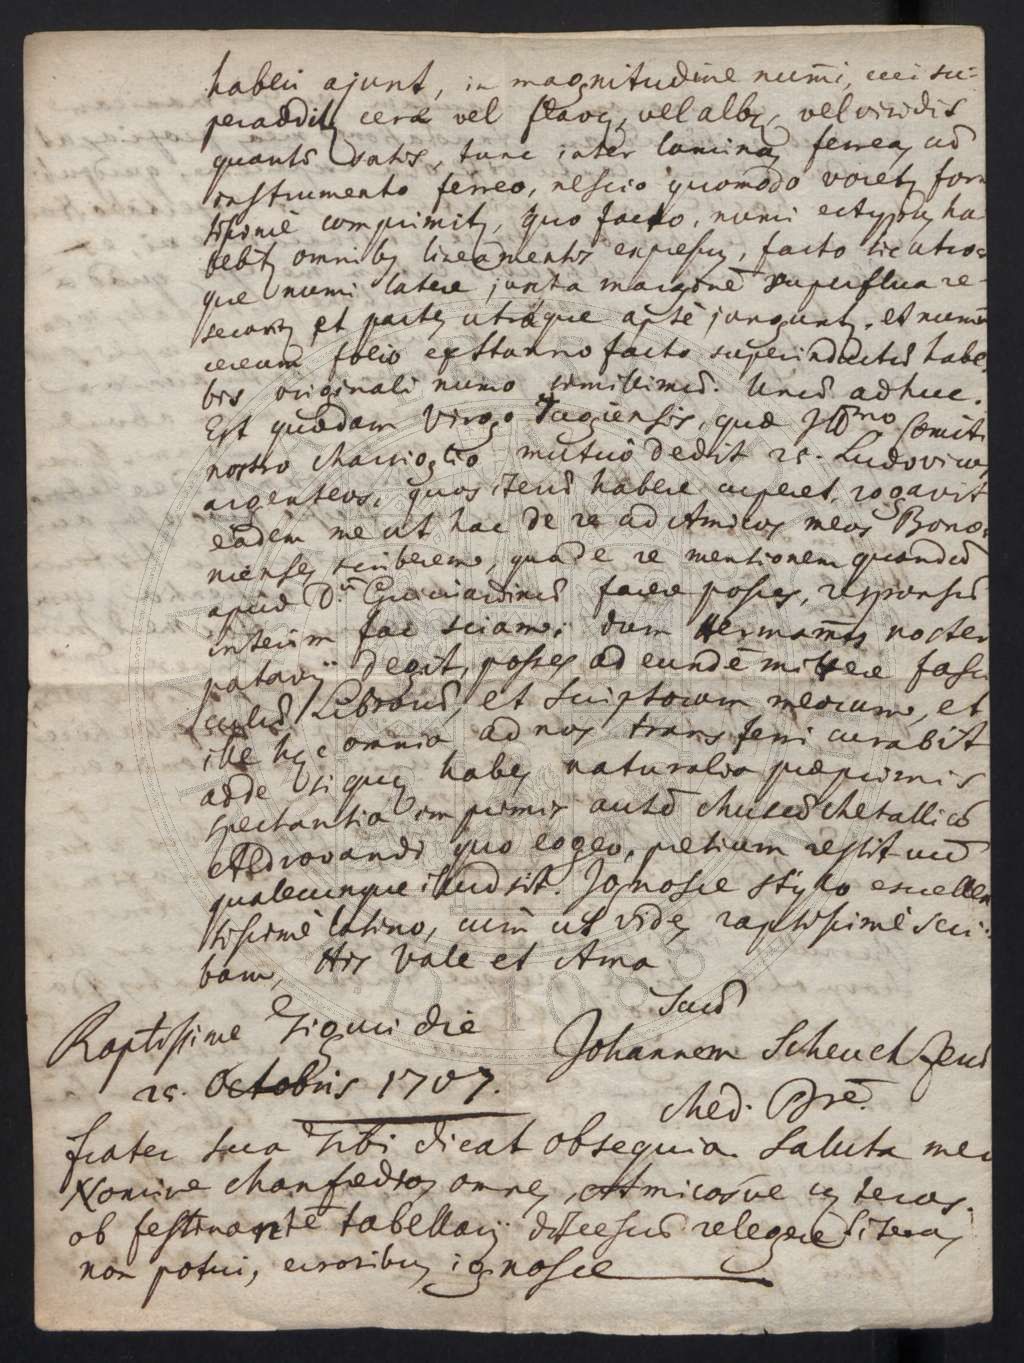 haberi ajunt, in magnitudine num̄i, cui su-
peradditʒ cera vel flavʒ, vel albʒ, vel viridis
quantū satis, tunc inter laminas ferreas cū
instrumento ferreo, nescio quomodo vocetʒ for-
tissimè comprimitʒ, quo facto, numi ectypum ha
bebitʒ omnibʒ lineamentis expressum, facto hic utro-
que numi latere juxta marginē superflua re-
secantʒ et partes utræque aptè junguntʒ. et numū
cereum folio ex stanno facto superinductū habe
bis originali numo simillimū. Unū adhuc.
Est quædam Virgo Tugiensis, quæ Illmo Comiti
nostro Marsiglio mutuò dedit 25. Ludovicos
argenteos, quos iterū habere cuperet, rogavit
eadem me ut hac de re ad Amicos meos Bono-
nienses scriberem, qua de re mentionem quandā
apud D.n Guicciardinū facere posses, responsū
interim fac sciam: dum Hermannus noster
patavij degit, posses ad eundē mittere fasci
culū Librorū, et scriptorum meorum, et
ille hæc omnia ad nos transferri curabit
adde si quæ habes naturalia præprimis
spectantia imprimis autē Musæū Metallicū
Aldrovandi quo egeo, pretium restituā
qualecunque illud sit. Ignosce stylo excellen
tissimè latino, cum ut vides raptissimè scri-
bam, His Vale et Ama
Tuū
Raptissime Tiguri die
Johannem Scheuchzerū
25. Octobris 1707.
Med. Dre.
frater sua Tibi dicat obsequia. Saluta meo
Nomine Manfredios omnes, Amicosve cæteros.
ob festinantē tabellarij discessū relegere literas
non potui, erroribus ignosce